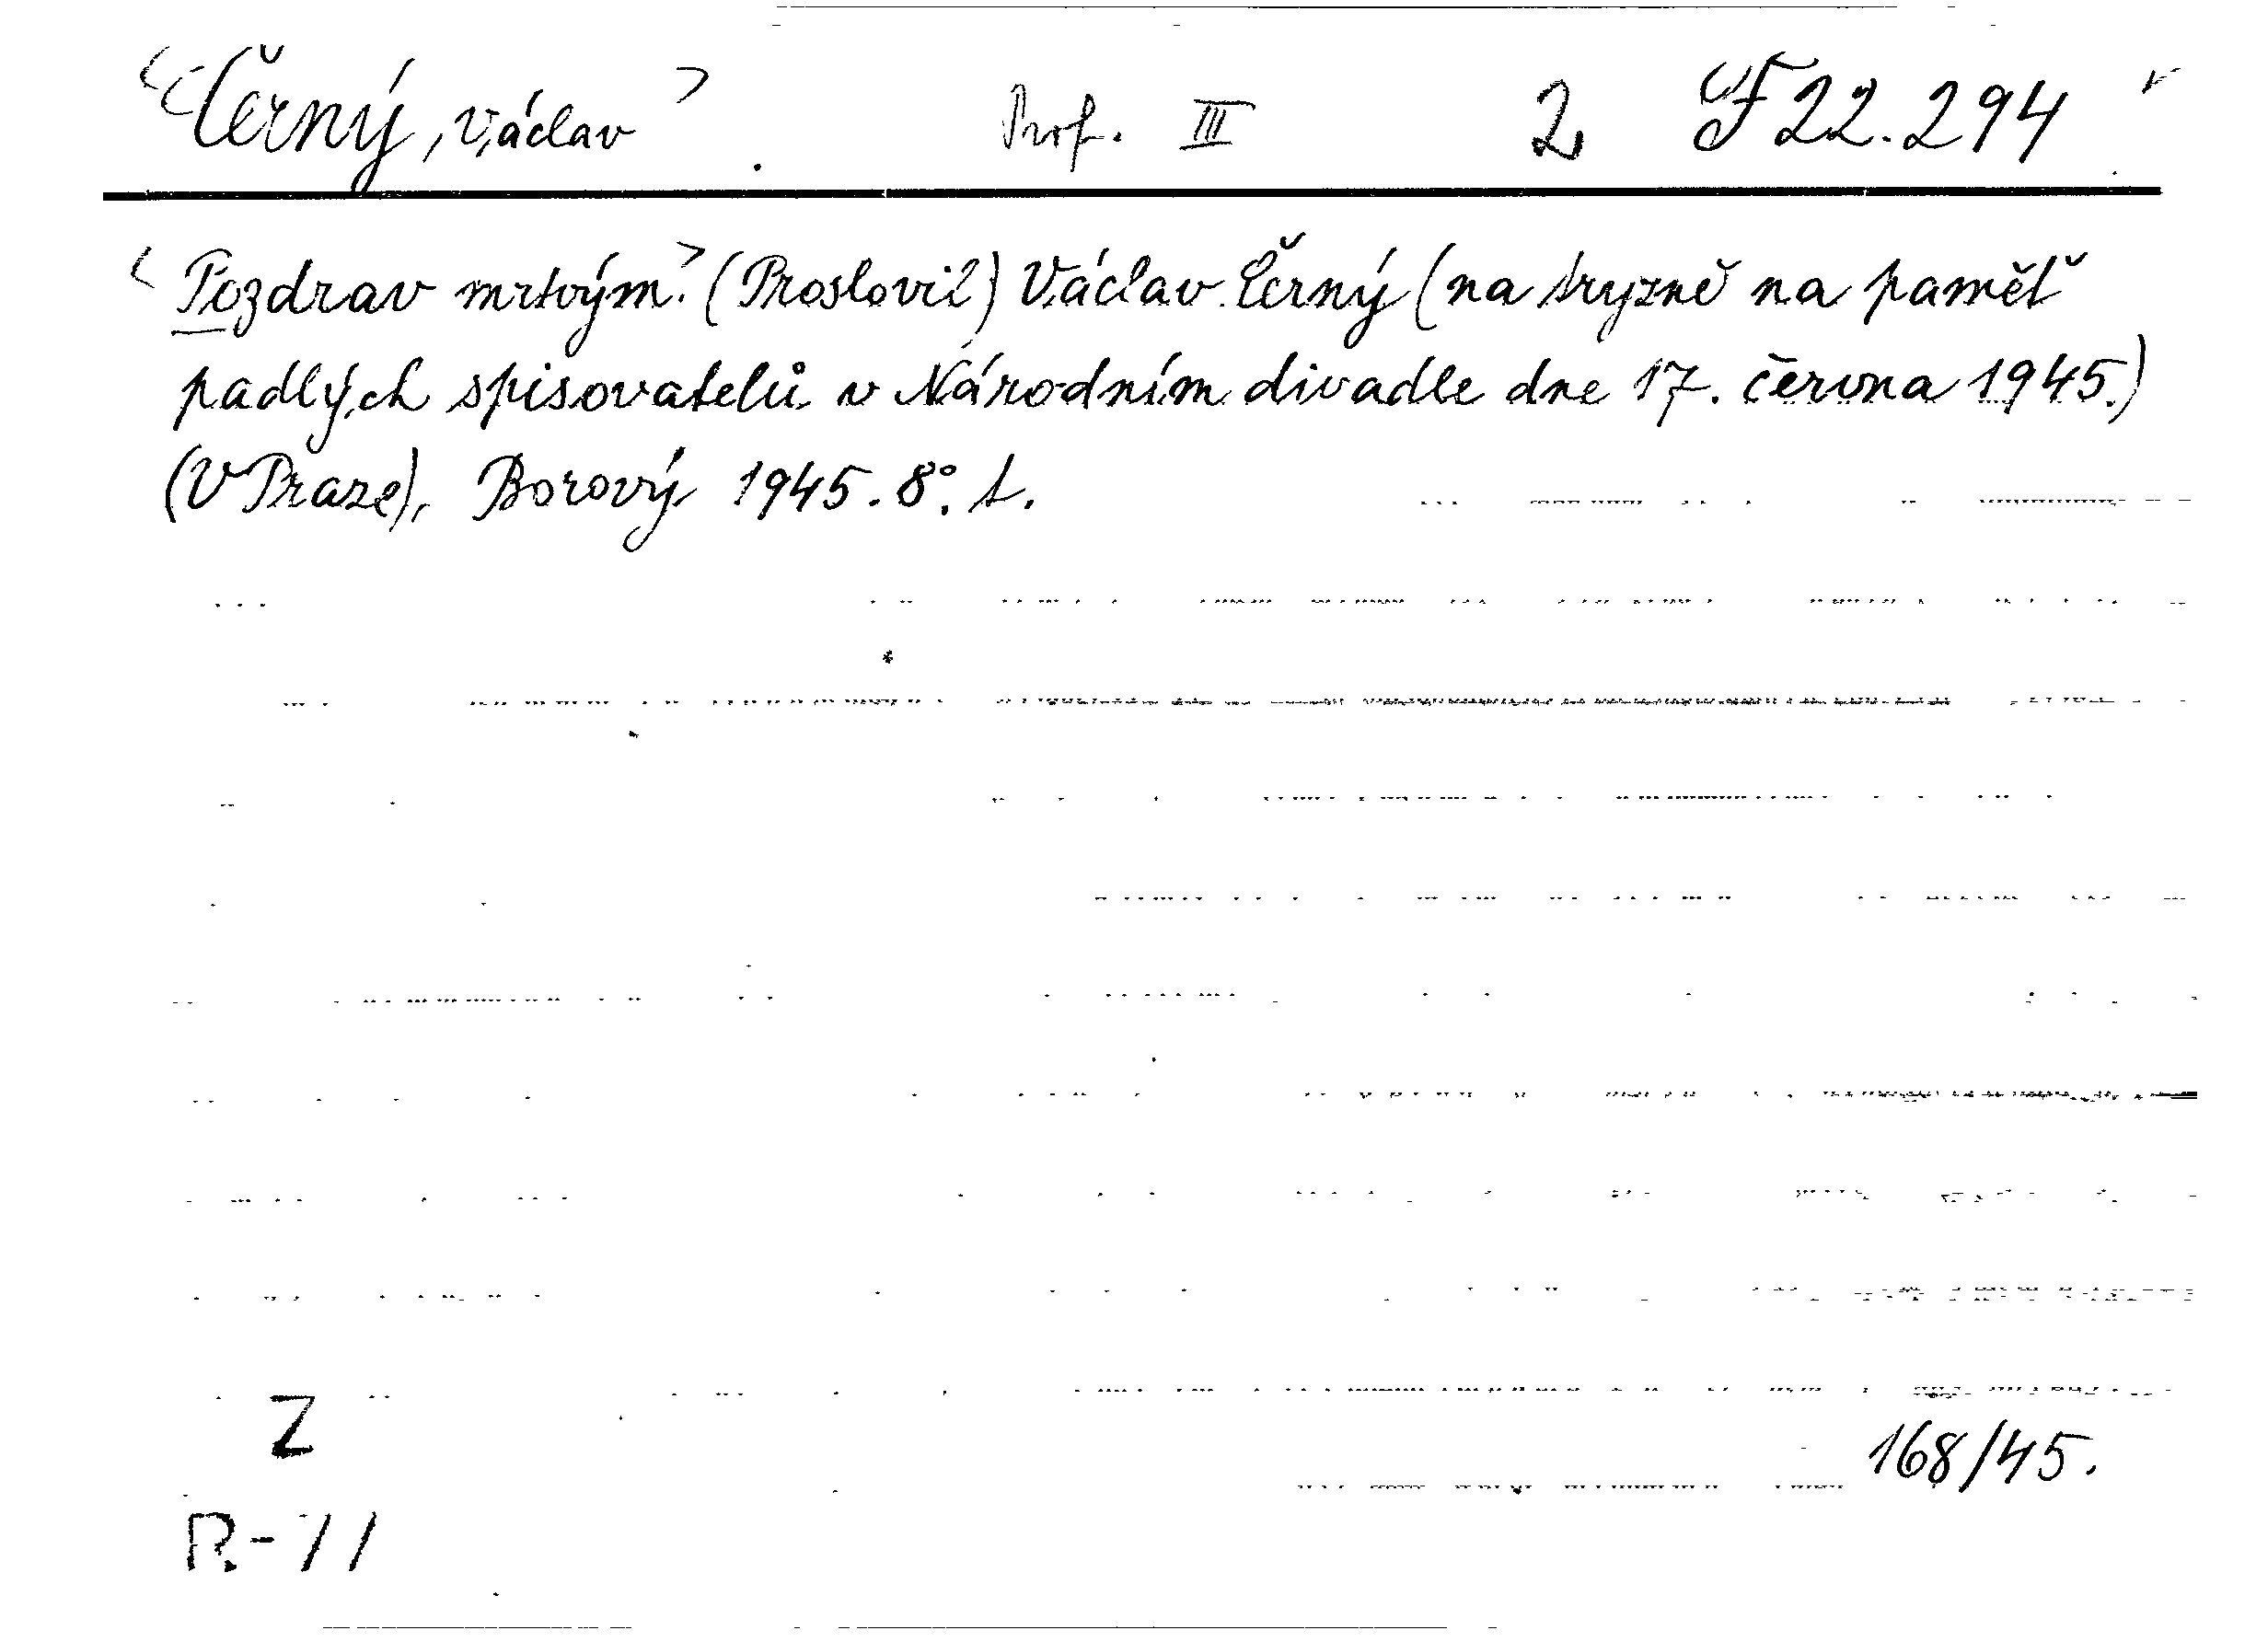 <Černý, Václav> Prof. III 2 F 22.294
<Pozdrav mrtvým.> (Proslovil) Václav Černý (na tryzně na paměť
padlých spisovatelů v Národním divadle dne 17. června 1945.)
(V Praze), Borový 1945. 8°. t.
Z
168/45.
R-71